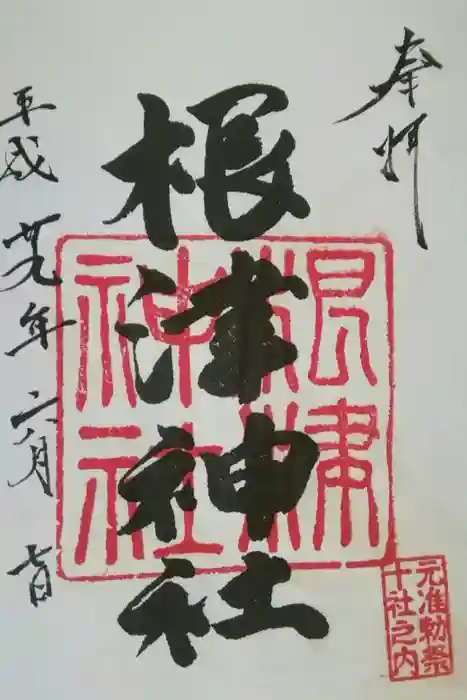 奉拝
根津神社
根津神社
元准勅祭
十社之内
平成廿九年六月七日